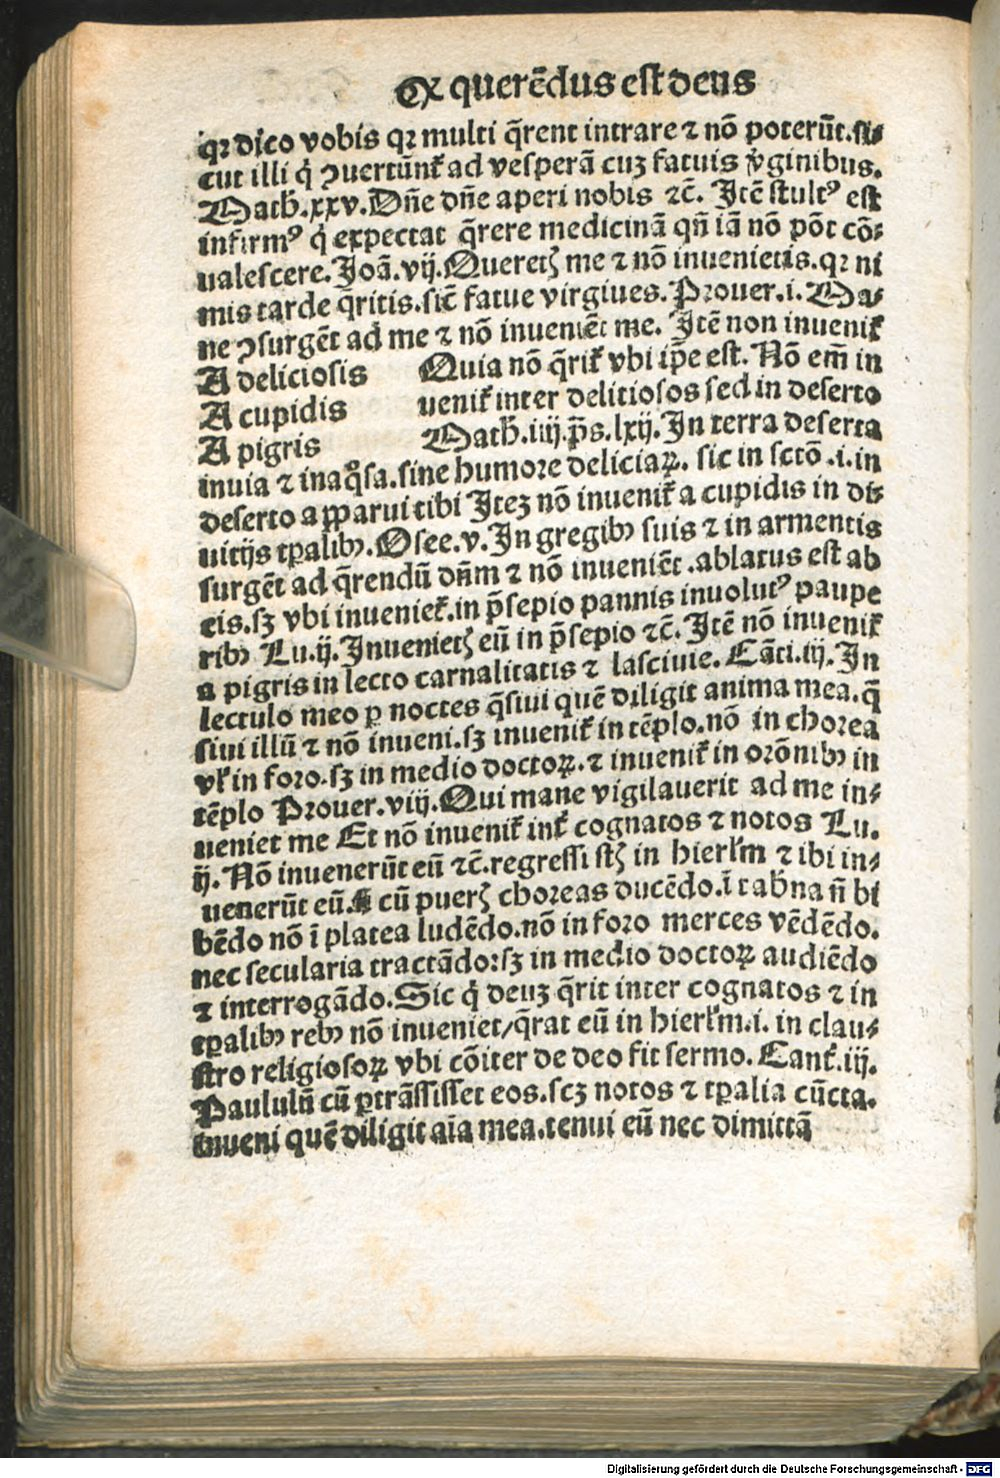 Qꝛ querēdus est deus
qꝛ dico vobis qꝛ multi q̄rent intrare ⁊ nō poterūt.si⸗
cut illi q̇ ꝯuertūnt᷑ ad vesperā cuꝫ fatuis v̓ginibus.
Math̄.xxv.Dn̄e dn̄e aperi nobis ⁊c̄. Itē stultꝰ est
infirmꝰ q̇ expectat q̄rere medicinā qn̄ iā nō pōt cō⸗
ualescere.Joā.vij.Queretꝭ me ⁊ nō inuenietis.qꝛ ni
mis tarde q̄ritis.sic̄ fatue virgiues.Prouer.i.Ma⸗
ne ꝯsurgēt ad me ⁊ nō inueniēt me. Itē non inuenit᷑
A deliciosis Quia nō q̄rit᷑ vbi ip̄e est. Nō em̄ in
A cupidis uenit᷑ inter delitiosos sed in deserto
A pigris Math̄.iiij.p̄s.lxij.In terra deserta
inuia ⁊ inaqͦsa.sine humore deliciaꝝ. sic in sctō .i.in
deserto apparui tibi Iteꝫ nō inuenit᷑ a cupidis in di⸗
uitijs tꝑalibꝫ.Osee.v.In gregibꝫ suis ⁊ in armentis
surgēt ad q̄rendū dn̄m ⁊ nō inueniēt.ablatus est ab
eis.sꝫ vbi inueniet᷑.in p̄sepio pannis inuolutꝰ paupe
ribꝫ Lu.ij.Inuenietꝭ eū in p̄sepio ⁊c̄.Itē nō inuenit᷑
a pigris in lecto carnalitatis ⁊ lasciuie. Cāti.iij.In
lectulo meo ꝑ noctes q̄siui quē diligit anima mea.q̄
siui illū ⁊ nō inueni.sꝫ inuenit᷑ in tēplo.nō in chorea
vl᷑ in foro.sꝫ in medio doctoꝝ.⁊ inuenit᷑ in orōnibꝫ in
tēplo Prouer.viij.Qui mane vigilauerit ad me in⸗
ueniet me Et nō inuenit᷑ int᷑ cognatos ⁊ notos Lu.
ij. Nō inuenerūt eū ⁊c̄.regressi stꝭ in hierl̓m ⁊ ibi in⸗
uenerūt eū. cū puerꝭ choreas ducēdo.ī tab̓na n̄ bi
bēdo nō ī platea ludēdo.nō in foro merces vēdēdo.
nec secularia tractādo:sꝫ in medio doctoꝝ audiēdo
⁊ interrogādo.Sic q̇ deuꝫ q̄rit inter cognatos ⁊ in
tꝑalibꝫ rebꝫ nō inueniet/q̄rat eū in hierl̓m.i. in clau⸗
stro religiosoꝝ vbi cōiter de deo fit sermo. Cant᷑.iij.
Paululū cū ꝑtrāssisset eos.scꝫ notos ⁊ tꝑalia cūcta.
inueni quē diligit aīa mea.tenui eū nec dimittā
Digitalisierung gefördert durch die Deutsche Forschungsgemeinschaft - DFG